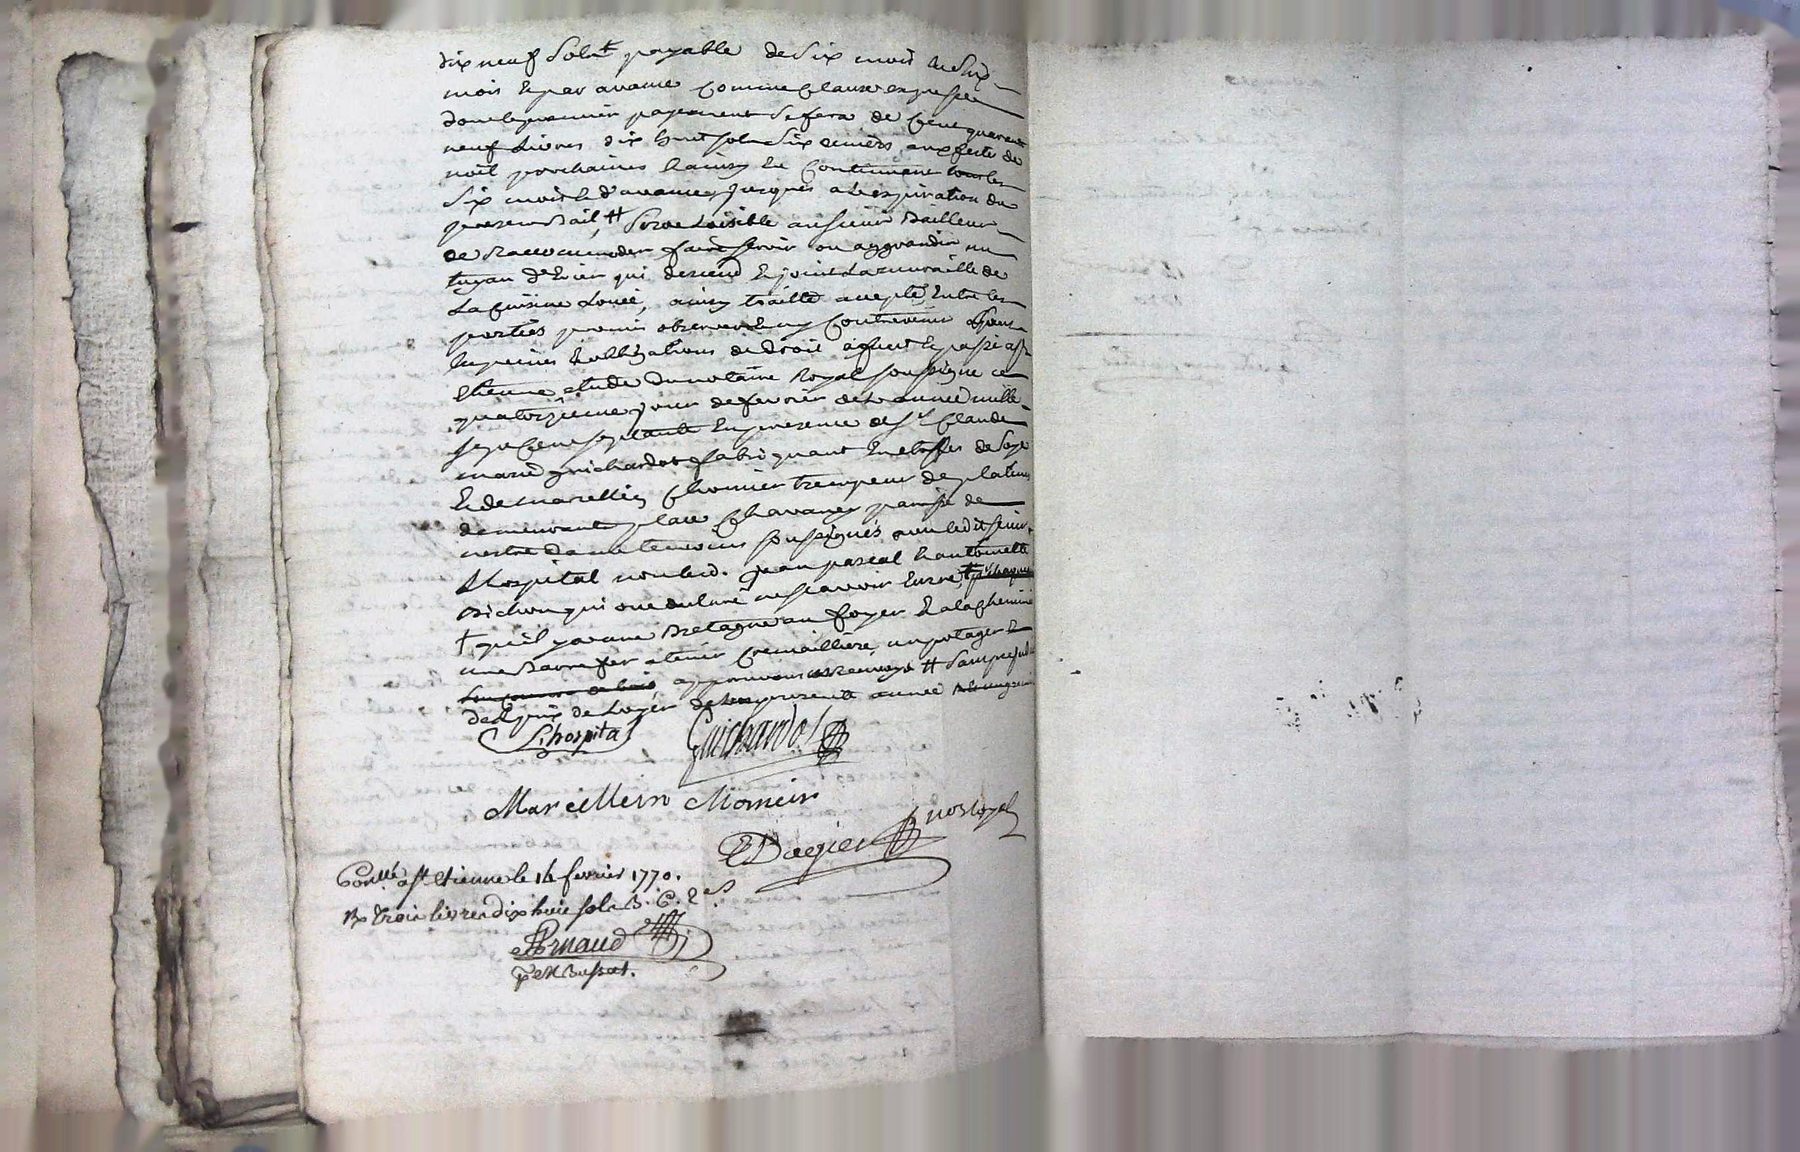 dix neuf sols payable de Six mois En Six
mois Et par avance Comme Clause expresse
dont le premier payement Se fera de Cent quarente
neuf Livres dix huit sols Six deniers aux festes de
noël prochaines Et ainsy En Continuant tous les
Six mois Et d'avance jusques a L'expiration du
present Bail, # Sera Loisible au sieur Bailleur
de Raccommoder faire servir ou aggrandir un
tuyau d'Evier qui descend Et joint La muraille de
La Cuisine Louée, ainsy traitté accepté Entre les
parties promis observer Et ny Contrevenir a peine
Les peines Et obligations de droit a fait Et passé a St
Etienne etude du notaire Royal soussigné ce
quatorzieme jour de fevrier de L'année mille
sept Cent septante En presence de Sr Claude
marie guichardot fabriquant En etoffes de Soye
Et de marcellin Chomier trempeur de platines
demeurants place Chavanes parroisse de
nostre dame temoins soussignés avec ledit sieur
Lhospital non led. Jean pascal Et antoinette
Bichon qui ont declaré ne sçavoir Ecrire
† qu'il y a une Bretagne au foyer Et a la cheminé
une Barre fer a tenir Cremaillière, un potager Et
approuvons Renvoys # Sans prejudice
du prix de Loyer de La presente année
Lhospital
Guichardot
Marcellein Chomein
EDagier
not Royal
Conllé a St Etienne le 14 fevrier 1770.
Rx trois livres dix huit sols B. C. Les
Arnaud
p. Mr Bussat.